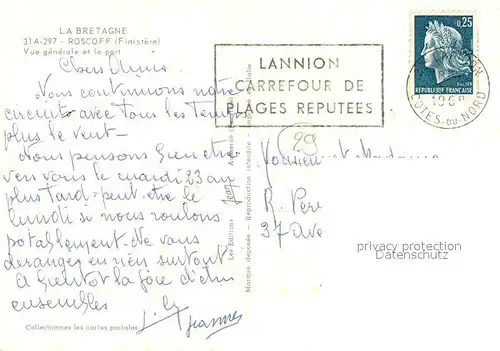 LA BRETAGNE
31A-297 - ROSCOFF (Finistère)
Vue générale et le port
Chers Amis
Nous continuons notre
circuits avec tous les temps
plus le vent -
Nous pensons bien être
vers le mardi 23 au
plus tard - peut-être le
lundi si nous roulons
potablement - Ne vous
derangez en rien surtout
A bientôt la joie d'être
ensembles
Jeannes
Collectionnez les cartes postales
Les Editions
Jean
Marque déposée - Reproduction interdite
LANNION
CARREFOUR DE
PLAGES REPUTEES
0,25
REPUBLIQUE FRANÇAISE
LANNION
1968
COTES-DU-NORD
29
Monsieur et Madame
R. Perr
37 Ave
privacy protection
Datenschutz